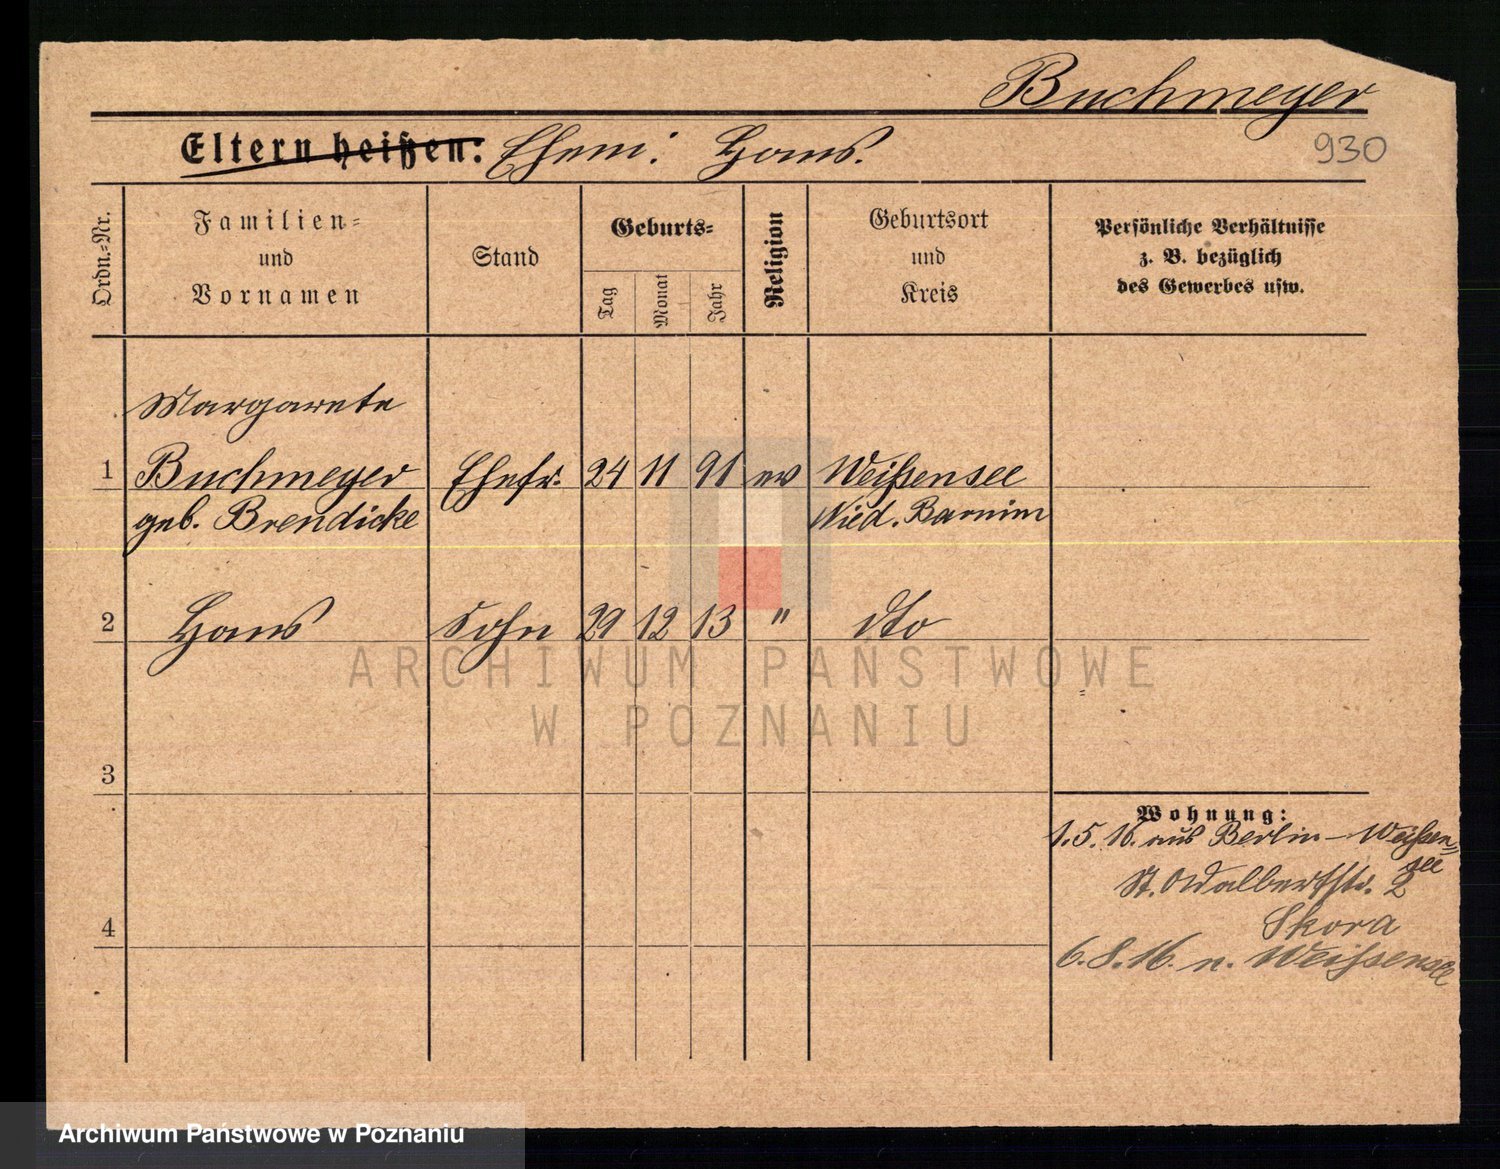 Buchmeyer
Eltern heißen: Ehem. Hans.
930
Ordn.=Nr.
Familien=
und
Vornamen
Stand
Geburts=
Tag
Monat
Jahr
Religion
Geburtsort
und
Kreis
Persönliche Verhältnisse
z. B. bezüglich
des Gewerbes usw.
Margarete
1 Buchmeyer Ehefr. 24 11 91 ev Weißensee
geb. Brendicke Nied. Barnim
2 Hans Sohn 29 12 13 " dto
ARCHIWUM PAŃSTWOWE
W POZNANIU
3
Wohnung:
1.5.16. aus Berlin-Weißen=
see
St. Adalbertstr. 2
4
Skora
6.8.16. n. Weißensee
Archiwum Państwowe w Poznaniu